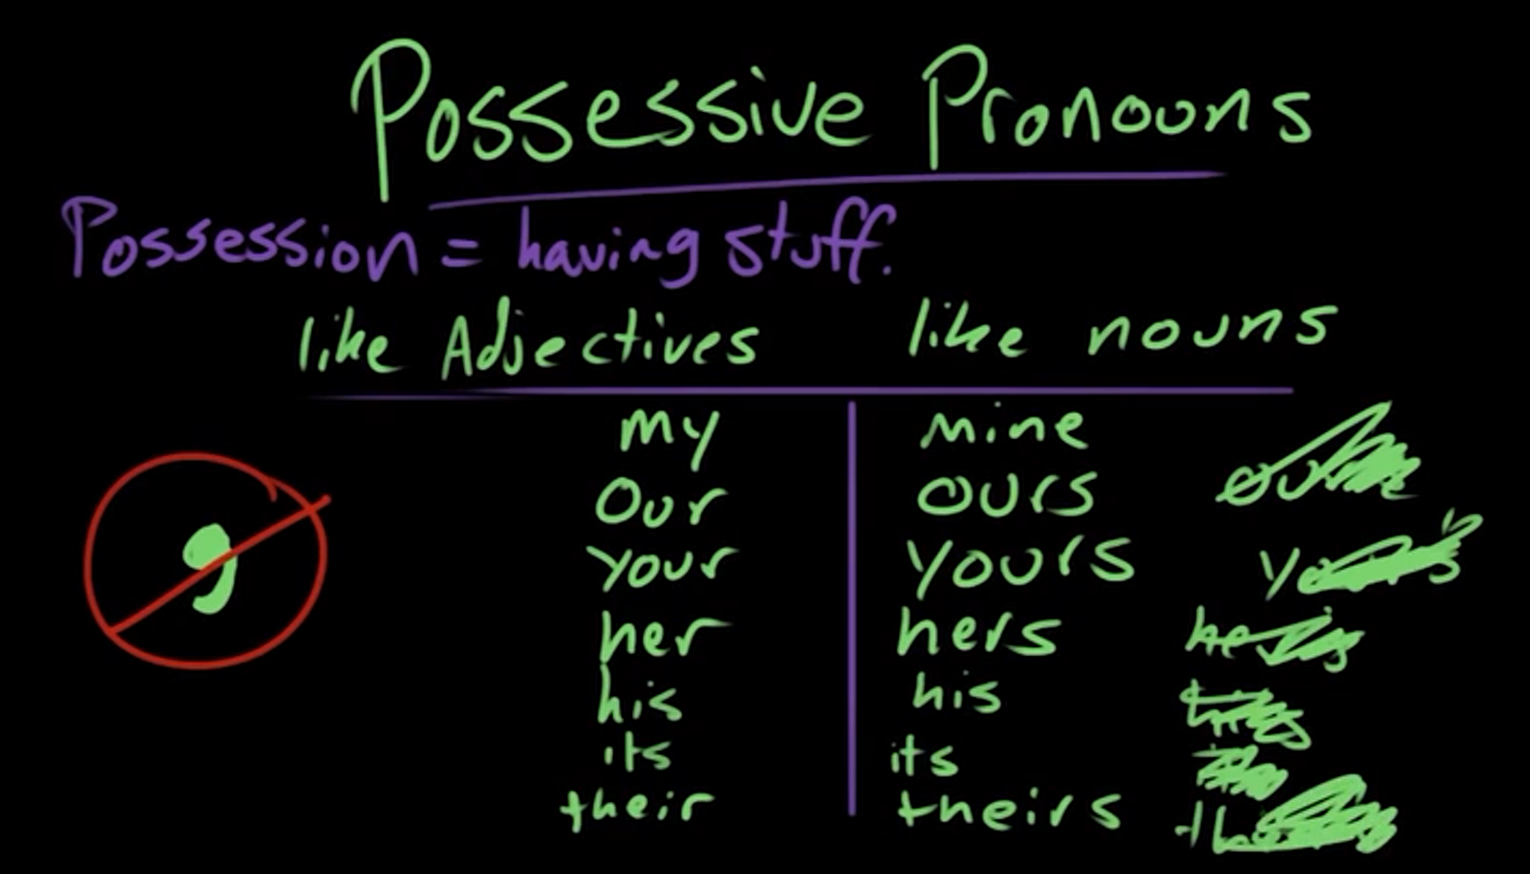 Possessive Pronouns
Possession = having stuff.
like Adjectives like nouns
my mine
Our ours
your yours
her hers
his his
its its
their theirs